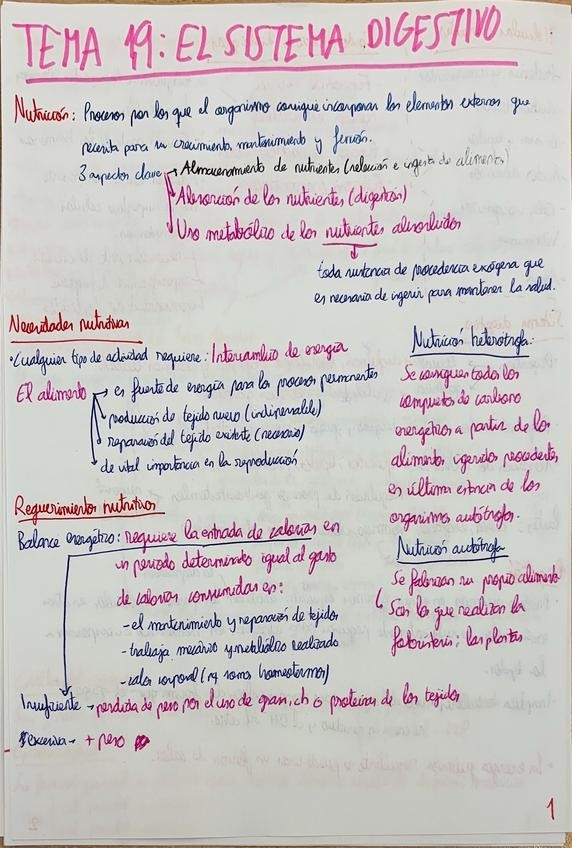 TEMA 19: EL SISTEMA DIGESTIVO
Nutrición: Procesos por los que el organismo consigue incorporar los elementos externos que
necesita para su crecimiento, mantenimiento y función.
3 aspectos clave → Almacenamiento de nutrientes (selección e ingesta de alimentos)
Absorción de los nutrientes (digestión)
Uso metabólico de los nutrientes absorbidos
toda sustancia de procedencia exógena que
es necesaria de ingerir para mantener la salud.
Necesidades nutritivas
• Cualquier tipo de actividad requiere: Intercambio de energía
El alimento → es fuente de energía para los procesos permanentes
producción de tejido nuevo (indispensable)
reparación del tejido existente (necesario)
de vital importancia en la reproducción
Nutrición heterótrofa:
Se consiguen todos los
compuestos de carbono
energéticos a partir de los
alimentos ingeridos procedentes
en última estancia de los
organismos autótrofos.
Requerimientos nutritivos
Balance energético: requiere la entrada de calorías en
un periodo determinado igual al gasto
de calorías consumidas en:
- el mantenimiento y reparación de tejidos
- trabajo mecánico y metabólico realizado
- calor corporal (si somos homeotermos)
Insuficiente → perdida de peso por el uso de grasa, ch o proteínas de los tejidos
Excesiva → + peso
Nutrición autótrofa
Se fabrican su propio alimento
Son los que realizan la
fotosíntesis: las plantas
1